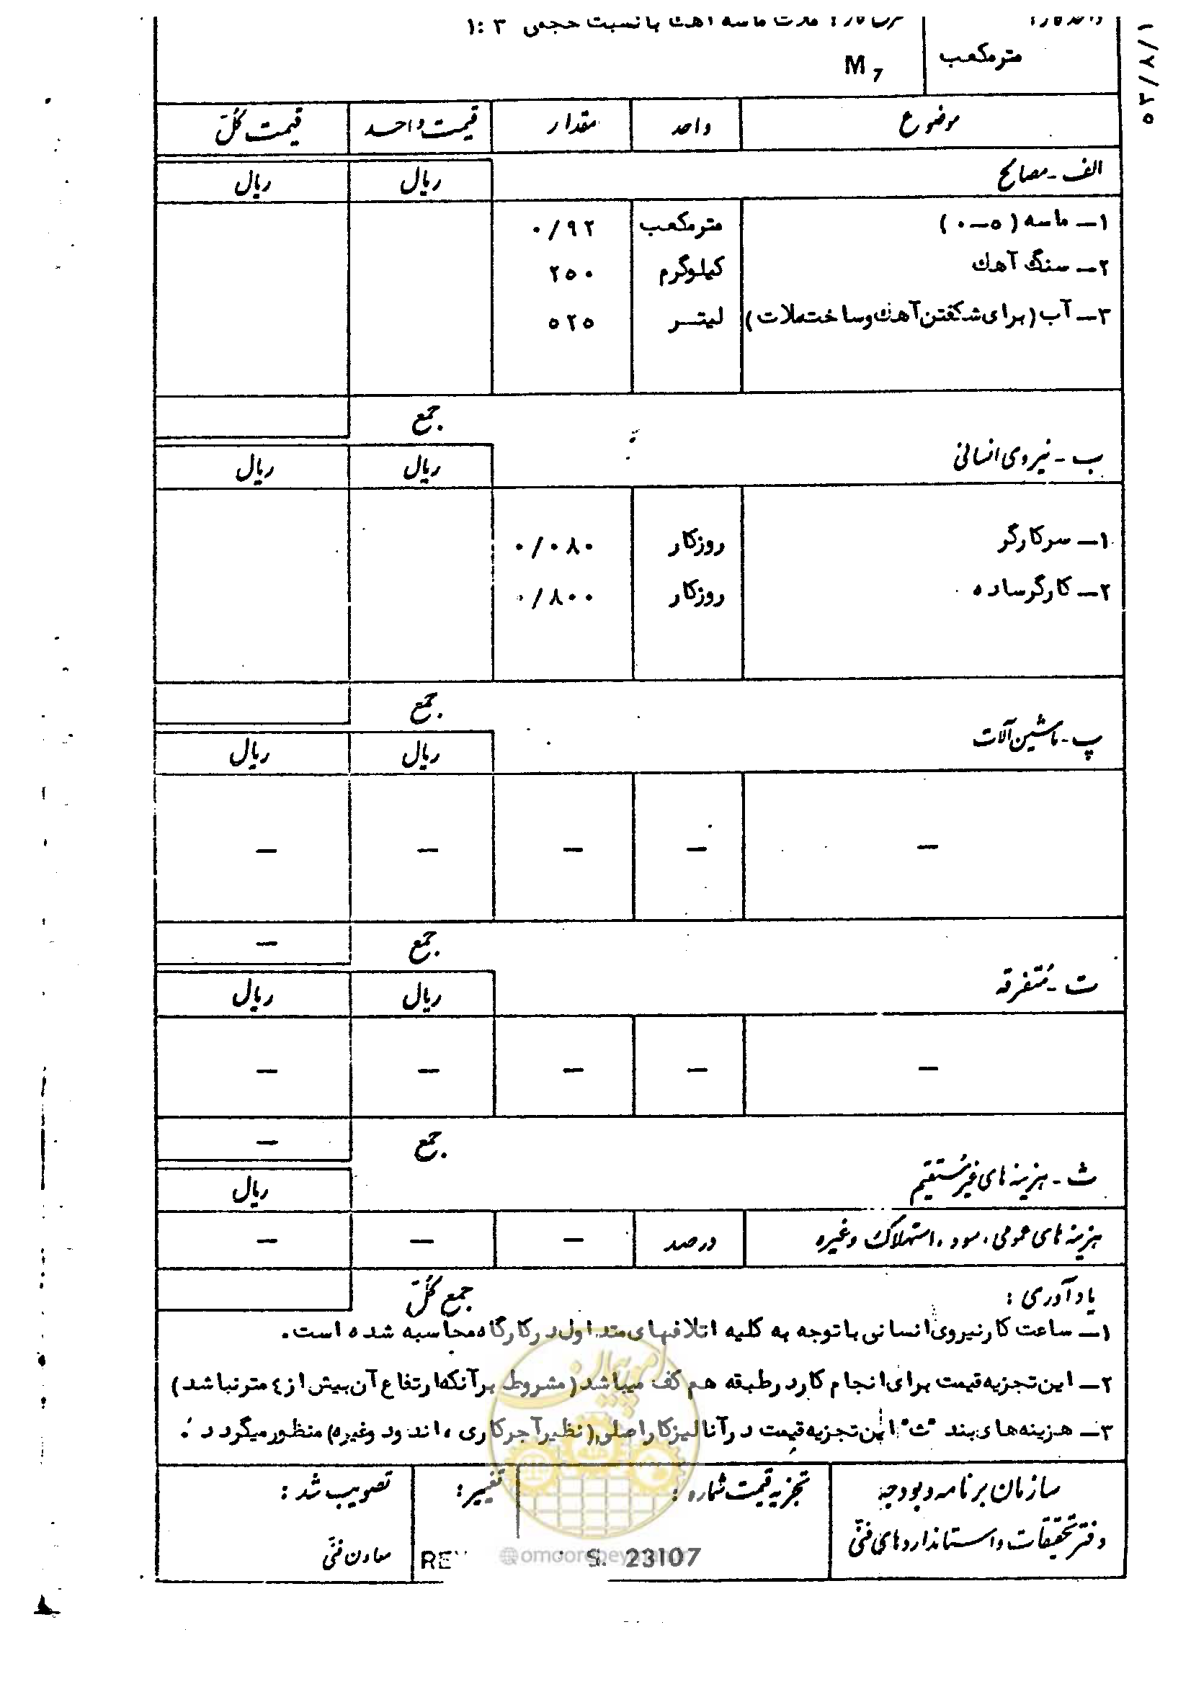 واحد کار: شرح کار: ملات ماسه آهك با نسبت حجمی ۳ :۱
مترمکعب M7
۵۳/۸/۱
موضوع واحد مقدار قیمت واحد قیمت کلّ
الف - مصالح ریال ریال
۱- ماسه ( ۵-۰ ) مترمکعب ۰/۹۲
۲- سنگ آهك کیلوگرم ۲۵۰
۳- آب ( برای شکفتن آهك و ساخت ملات ) لیتر ۵۲۵
جمع
ب - نیروی انسانی ریال ریال
۱- سرکارگر روزکار ۰/۰۸۰
۲- کارگر ساده روزکار ۰/۸۰۰
جمع
پ - ماشین آلات ریال ریال
— — — — —
جمع —
ت - مُتفرقه ریال ریال
— — — — —
جمع —
ث - هزینه های غیرمُستقیم ریال
هزینه های عمومی ، سود ، استهلاک وغیره درصد — — —
یادآوری : جمع کُلّ
۱- ساعت کار نیروی انسانی با توجه به کلیه اتلافهای متداول در کارگاه محاسبه شده است.
۲- این تجزیه قیمت برای انجام کار در طبقه هم کف میباشد ( مشروط بر آنکه ارتفاع آن بیش از ٤ متر نباشد )
۳- هزینه های بند "ث" این تجزیه قیمت در آنالیز کار اصلی ( نظیر آجرکاری ، اندود وغیره ) منظور میگردد .
سازمان برنامه و بودجه تجزیه قیمت شماره : تغییر : تصویب شد :
دفتر تحقیقات و استانداردهای فنّی S. 23107 REV معاون فنّی
امور پیمان
@omoorepeyman